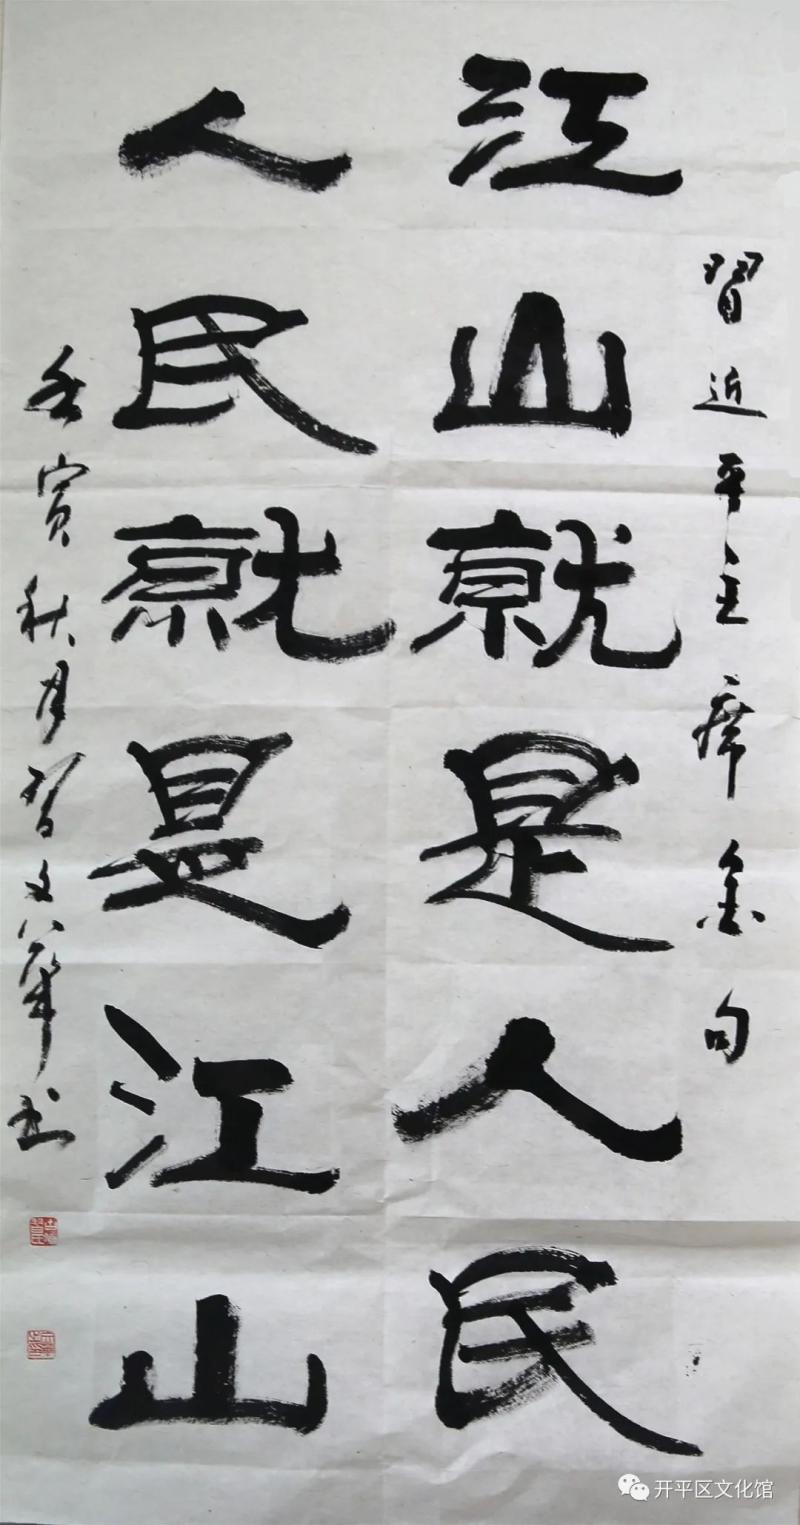 習近平主席金句
江山就是人民
人民就是江山
壬寅秋月習文華书
开平区文化馆